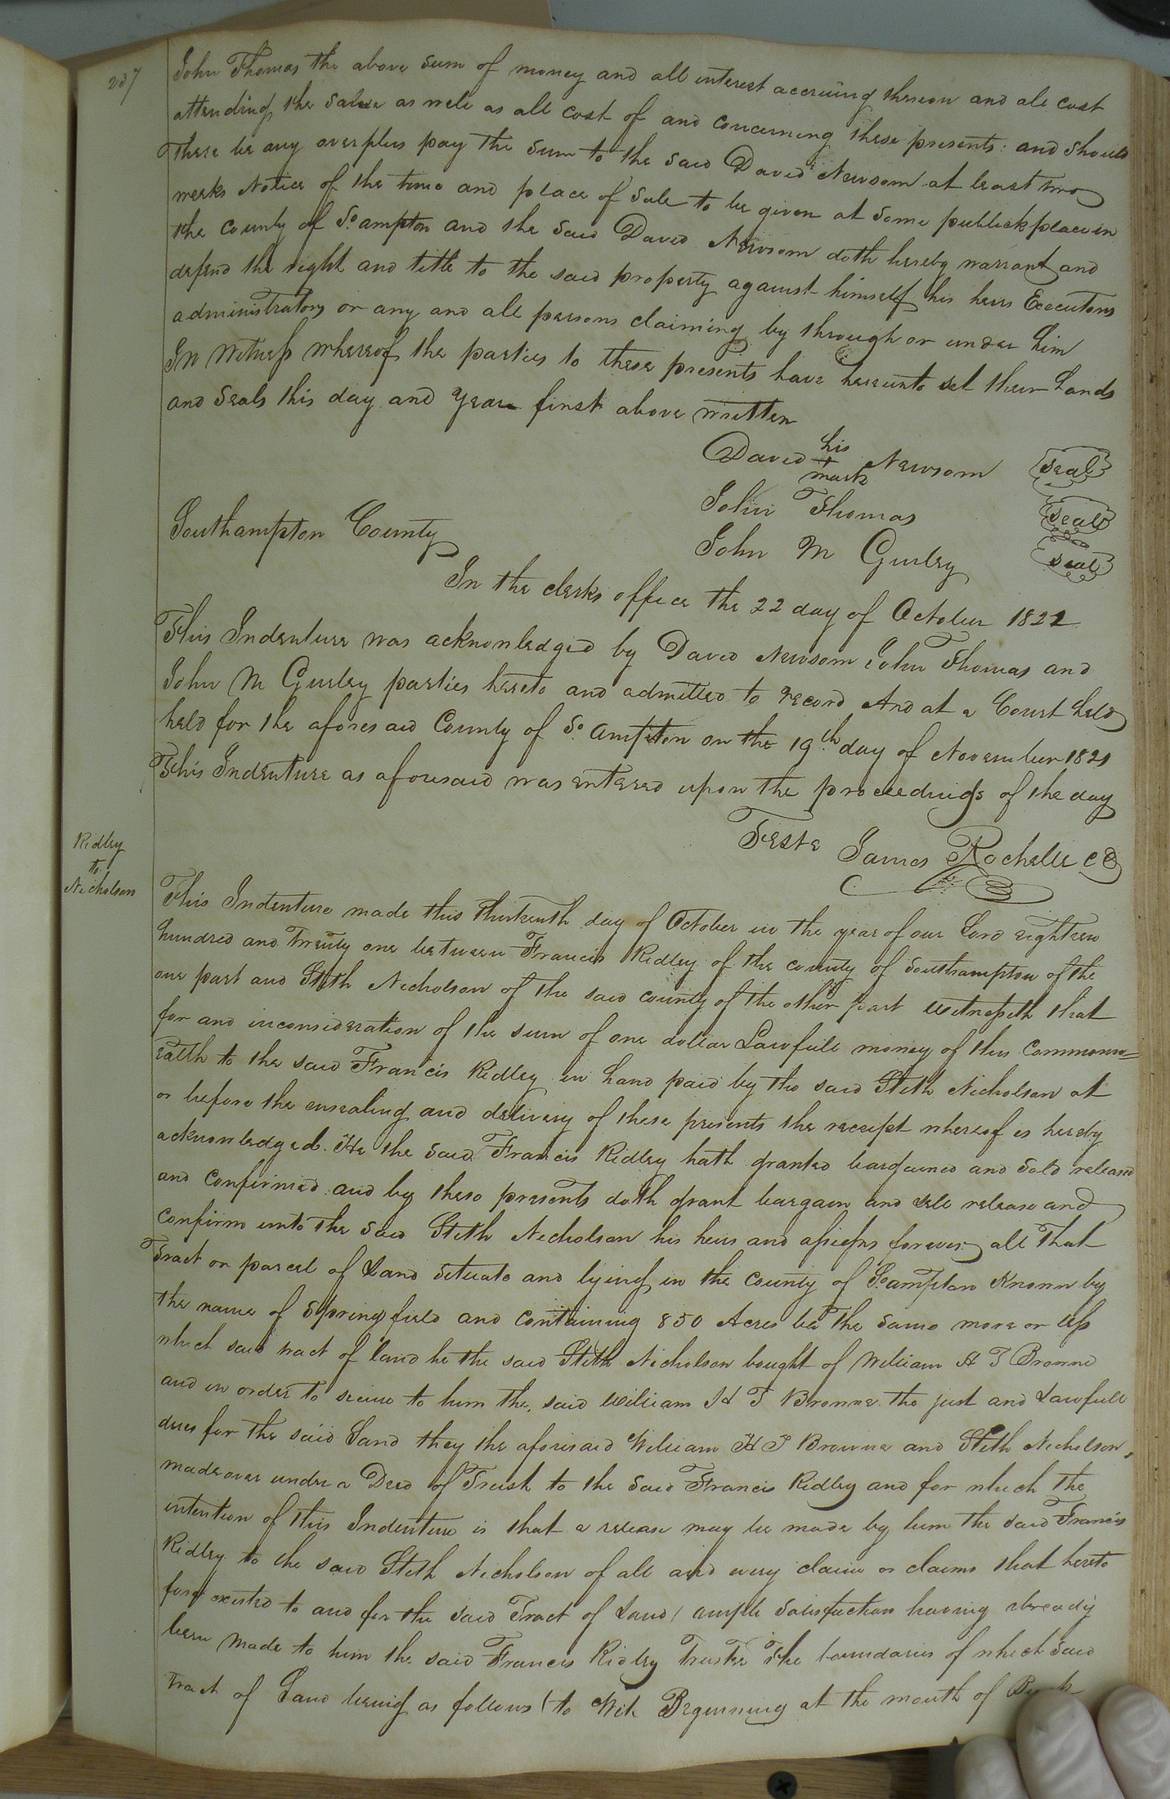 237
John Thomas the above sum of money and all interest accruing thereon and all cost
attending the same as well as all cost of and concerning these presents: and should
There be any overplus pay the sum to the said David Newsom at least two
weeks Notice of the time and place of Sale to be given at some publick place in
the County of So.ampton and the said David Newsom doth hereby warrant and
defend the right and title to the said property against himself his heirs Executors
administrators or any and all persons claiming by through or under him
In Witness whereof the parties to these presents have hereunto set their hands
and Seals this day and year first above written
David his + mark Newsom seal
John Thomas seal
Southampton County
John M Gurley seal
In the clerks office the 22 day of October 1821
This Indenture was acknowledged by David Newsom John Thomas and
John M Gurley parties hereto and admitted to record And at a Court held
held for the aforesaid County of So.ampton on the 19th day of November 1821
This Indenture as aforesaid was entered upon the proceedings of the day
Teste James Rochelle CC
Ridley
to
Nicholson
This Indenture made this thirteenth day of October in the year of our Lord eighteen
hundred and twenty one between Francis Ridley of the county of Southampton of the
one part and Stith Nicholson of the said county of the other part witnesseth that
for and inconsideration of the sum of one dollar Lawfull money of this Commonw=
ealth to the said Francis Ridley in hand paid by the said Stith Nicholson at
or before the ensealing and delivery of these presents the receipt whereof is hereby
acknowledged. He the said Francis Ridley hath granted bargained and sold released
and confirmed and by these presents doth grant bargain and sell release and
confirm unto the said Stith Nicholson his heirs and assigns forever all that
Tract or parcel of Land situate and lying in the county of So.ampton Known by
the name of Springfield and containing 850 Acres be the same more or less
which said tract of land he the said Stith Nicholson bought of William H T Browne
and in order to secure to him the said William H T Browne the just and Lawfull
dues for the said Land they the aforesaid William H T Browne and Stith Nicholson,
made over under a Deed of Trust to the said Francis Ridley and for which the
intention of this Indenture is that a release may be made by him the said Francis
Ridley to the said Stith Nicholson of all and every claim or claims that hereto
fore existed to and for the said Tract of Land / ample satisfaction having already
been made to him the said Francis Ridley Trustee The boundaries of which said
tract of Land being as follows (to Wit Beginning at the mouth of